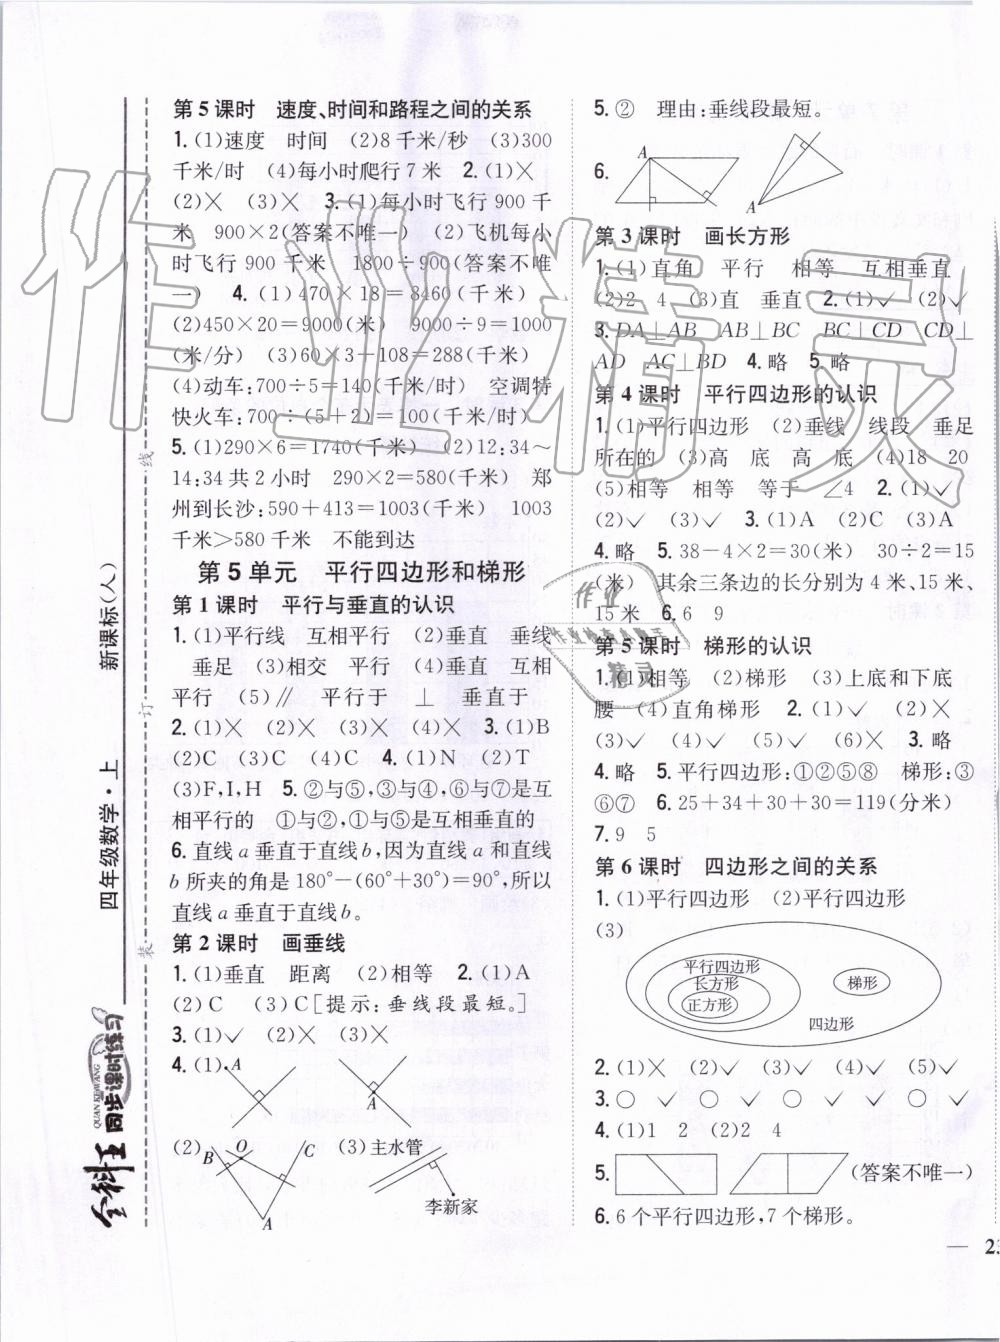 第5课时 速度、时间和路程之间的关系
1.(1)速度 时间 (2)8千米/秒 (3)300
千米/时 (4)每小时爬行7米 2.(1)×
(2)× (3)× 3.(1)每小时飞行900千
米 900×2(答案不唯一) (2)飞机每小
时飞行900千米 1800÷900(答案不唯
一) 4.(1)470×18=8460(千米)
(2)450×20=9000(米) 9000÷9=1000
(米/分) (3)60×3+108=288(千米)
(4)动车:700÷5=140(千米/时) 空调特
快火车:700÷(5+2)=100(千米/时)
5.(1)290×6=1740(千米) (2)12:34~
14:34共2小时 290×2=580(千米) 郑
州到长沙:590+413=1003(千米) 1003
千米>580千米 不能到达
第5单元 平行四边形和梯形
第1课时 平行与垂直的认识
1.(1)平行线 互相平行 (2)垂直 垂线
垂足 (3)相交 平行 (4)垂直 互相
平行 (5)∥ 平行于 ⊥ 垂直于
2.(1)× (2)× (3)× (4)× 3.(1)B
(2)C (3)C (4)C 4.(1)N (2)T
(3)F,I,H 5.②与⑤,③与④,⑥与⑦是互
相平行的 ①与②,①与⑤是互相垂直的
6.直线a垂直于直线b,因为直线a和直线
b所夹的角是180°-(60°+30°)=90°,所以
直线a垂直于直线b。
第2课时 画垂线
1.(1)垂直 距离 (2)相等 2.(1)A
(2)C (3)C[提示:垂线段最短。]
3.(1)√ (2)× (3)×
4.(1) A A
(2) B O C A (3)主水管
李新家
5.② 理由:垂线段最短。
6. A A
第3课时 画长方形
1.(1)直角 平行 相等 互相垂直
(2)2 4 (3)直 垂直 2.(1)√ (2)√
3.DA⊥AB AB⊥BC BC⊥CD CD⊥
AD AC⊥BD 4.略 5.略
第4课时 平行四边形的认识
1.(1)平行四边形 (2)垂线 线段 垂足
所在的 (3)高 底 高 底 (4)18 20
(5)相等 相等 等于 ∠4 2.(1)√
(2)√ (3)√ 3.(1)A (2)C (3)A
4.略 5.38-4×2=30(米) 30÷2=15
(米) 其余三条边的长分别为4米、15米、
15米 6.6 9
第5课时 梯形的认识
1.(1)相等 (2)梯形 (3)上底和下底
腰 (4)直角梯形 2.(1)√ (2)×
(3)√ (4)√ (5)√ (6)× 3.略
4.略 5.平行四边形:①②⑤⑧ 梯形:③
⑥⑦ 6.25+34+30+30=119(分米)
7.9 5
第6课时 四边形之间的关系
1.(1)平行四边形 (2)平行四边形
(3)
平行四边形
长方形
正方形
梯形
四边形
2.(1)× (2)√ (3)√ (4)√ (5)√
3.○ √ ○ √ ○ √ √ √ ○ √
4.(1)1 2 (2)2 4
5. (答案不唯一)
6.6个平行四边形,7个梯形。
— 23
新课标(人)
四年级数学·上
全科王 同步课时练习
QUAN KE WANG
线
订
装
作业精灵
作业
精灵